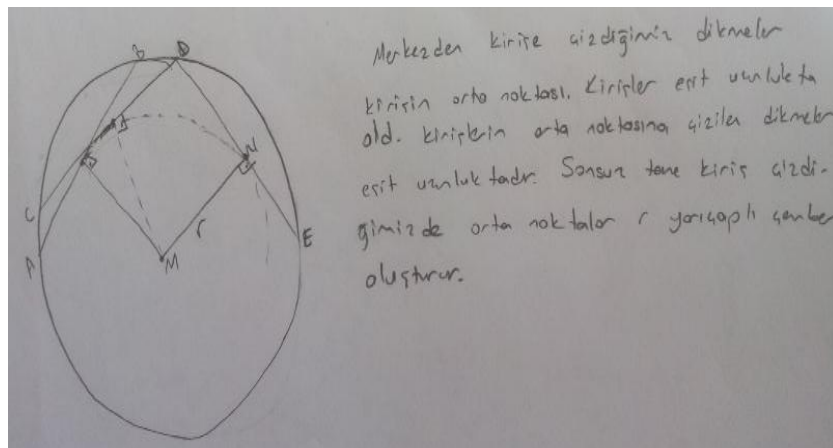 B D
N
C
A
M
r
E
Merkezden kirişe çizdiğimiz dikmeler
kirişin orta noktası. Kirişler eşit uzunlukta
old. kirişlerin orta noktasına çizilen dikmeler
eşit uzunluktadır. Sonsuz tane kiriş çizdi-
ğimizde orta noktalar r yarıçaplı çember
oluşturur.